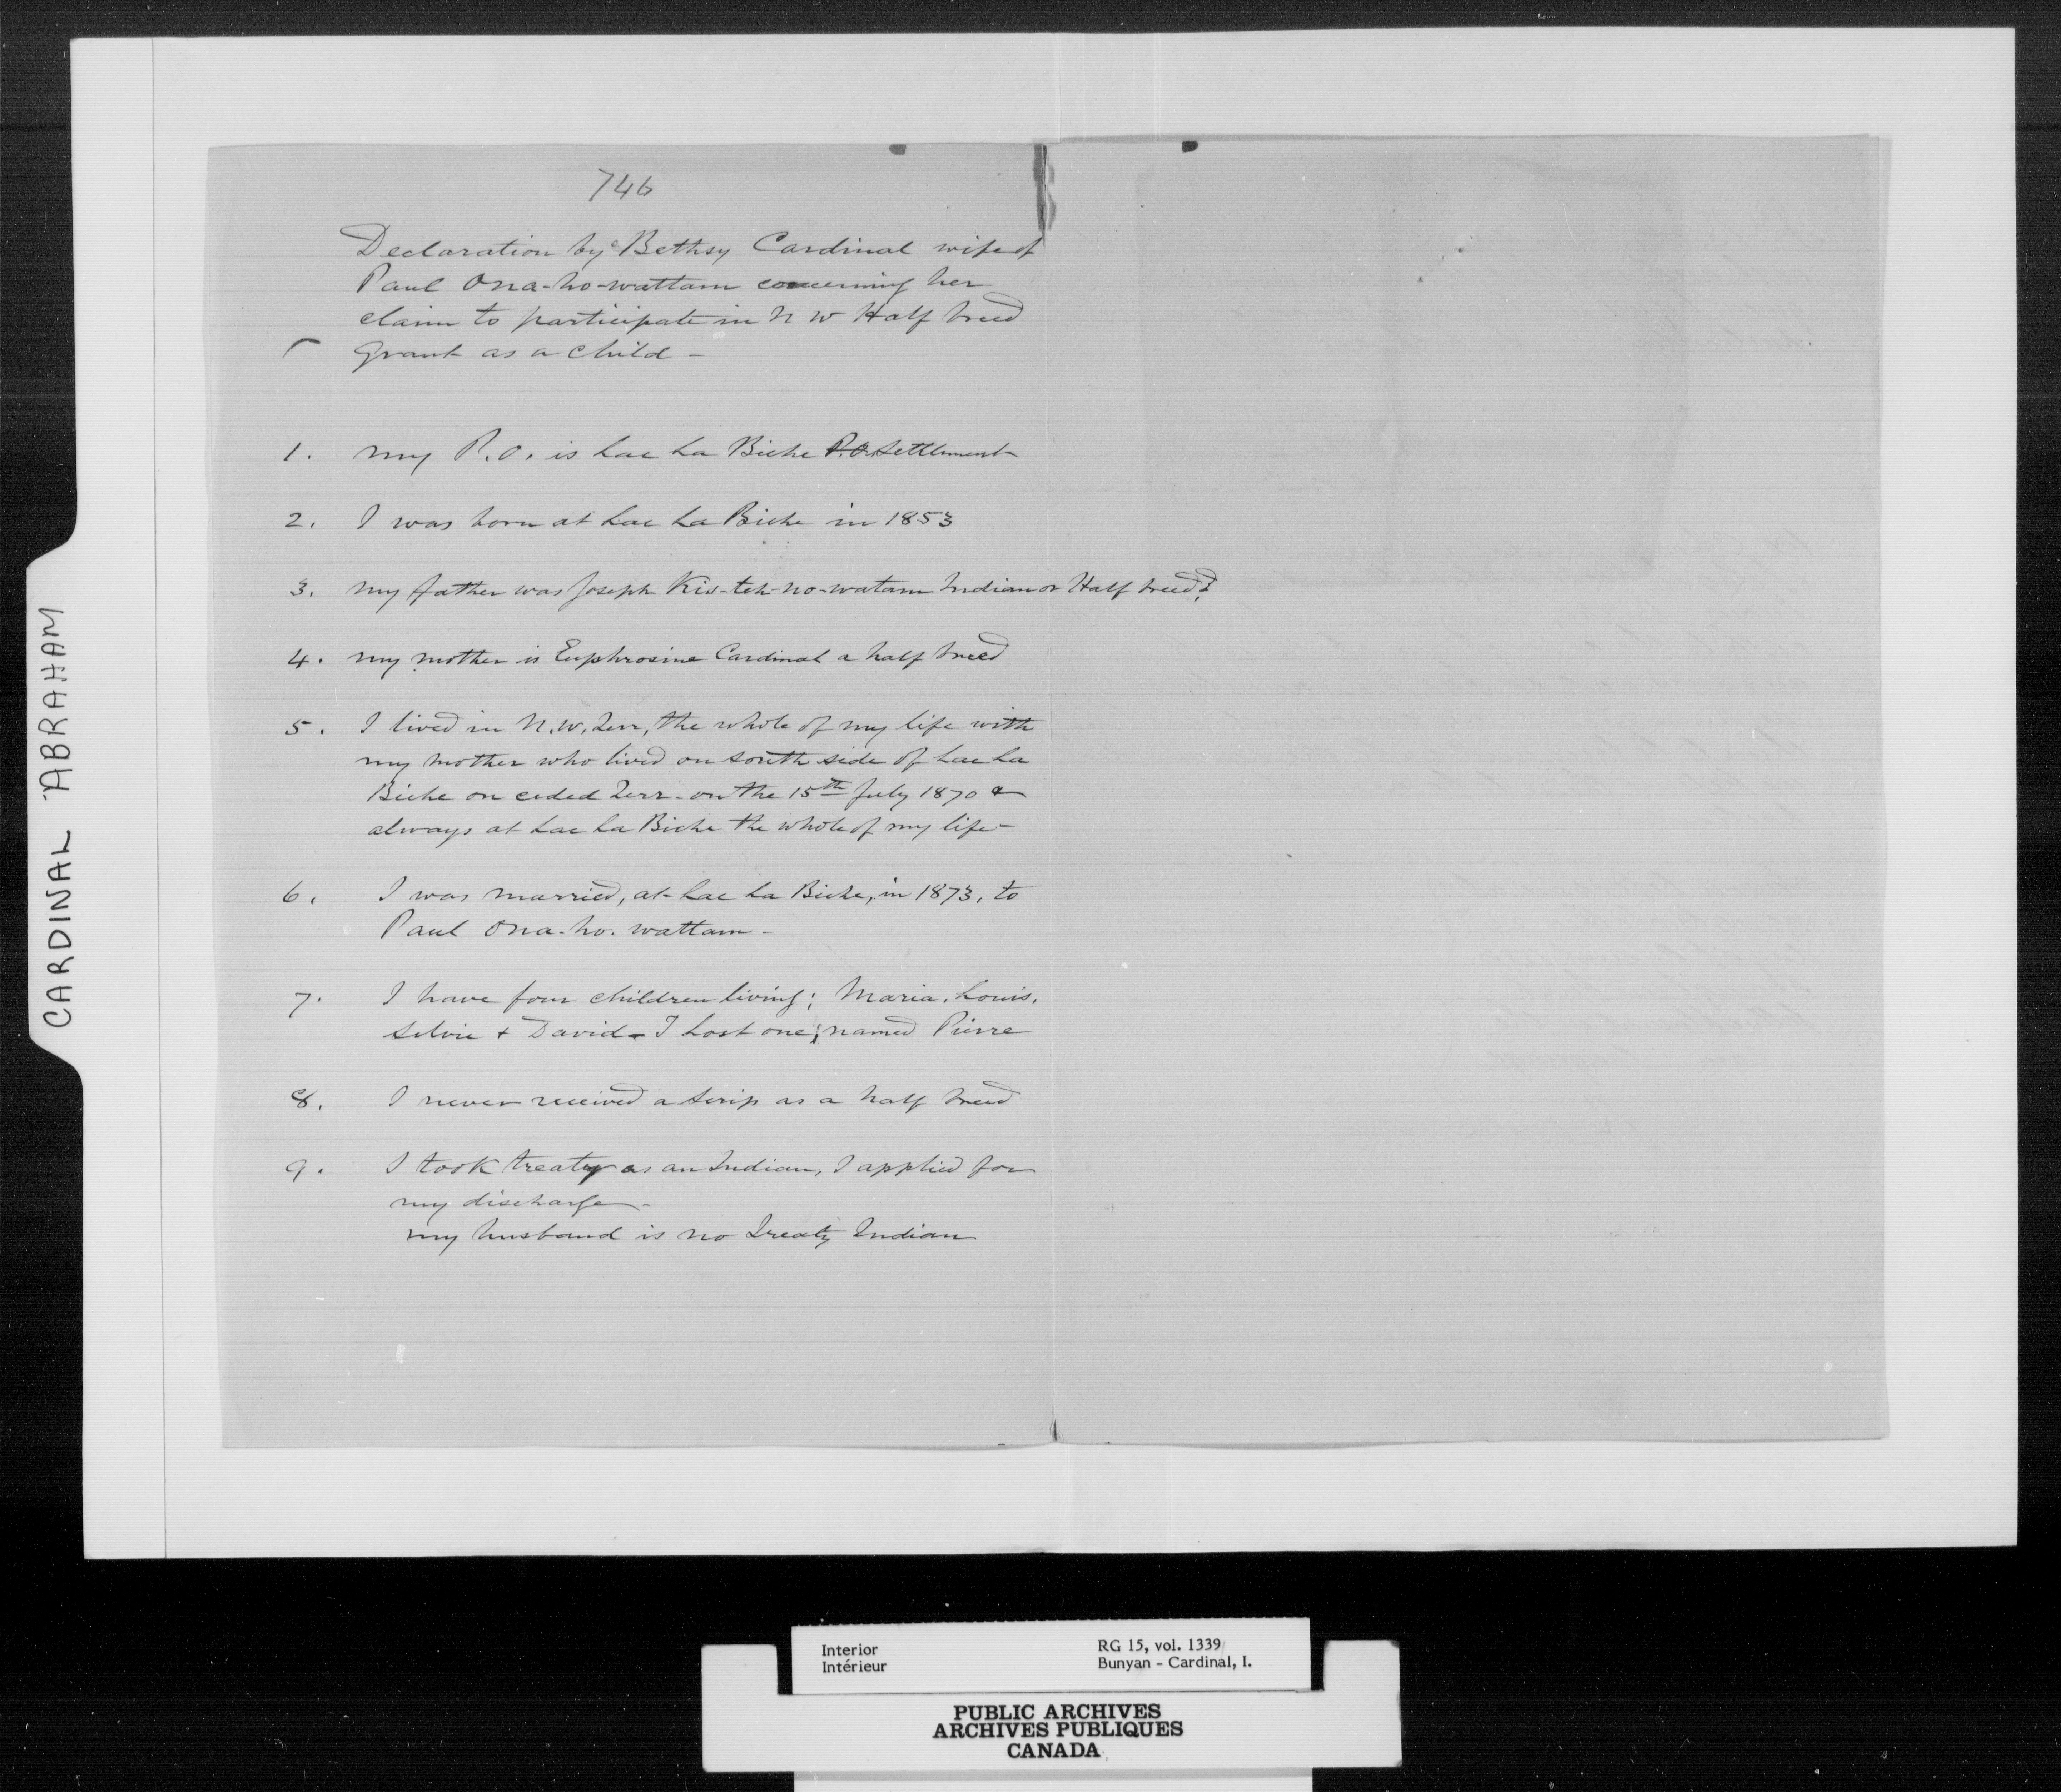 746
Declaration by Bethsy Cardinal wife of
Paul Ona-ho-wattam concerning her
claim to participate in N W Half breed
Grant as a child -
1. my P.O. is Lac La Biche P.O. Settlement
2. I was born at Lac La Biche in 1853
3. my father was Joseph Kis-teh-no-watam Indian or Half breed?
4. my mother is Euphrosine Cardinal a half breed
5. I lived in N.W. Terr, the whole of my life with
my mother who lived on south side of Lac La
Biche on ceded Terr - on the 15th July 1870 &
always at Lac La Biche the whole of my life -
6. I was married, at Lac La Biche, in 1873, to
Paul Ona-ho-wattam -
7. I have four children living; Maria, Louis,
Silvie + David - I Lost one; named Pierre
8. I never received a scrip as a half breed
9. I took treaty as an Indian, I applied for
my discharge -
my husband is no Treaty Indian
CARDINAL ABRAHAM
Interior
Intérieur
RG 15, vol. 1339
Bunyan - Cardinal, I.
PUBLIC ARCHIVES
ARCHIVES PUBLIQUES
CANADA